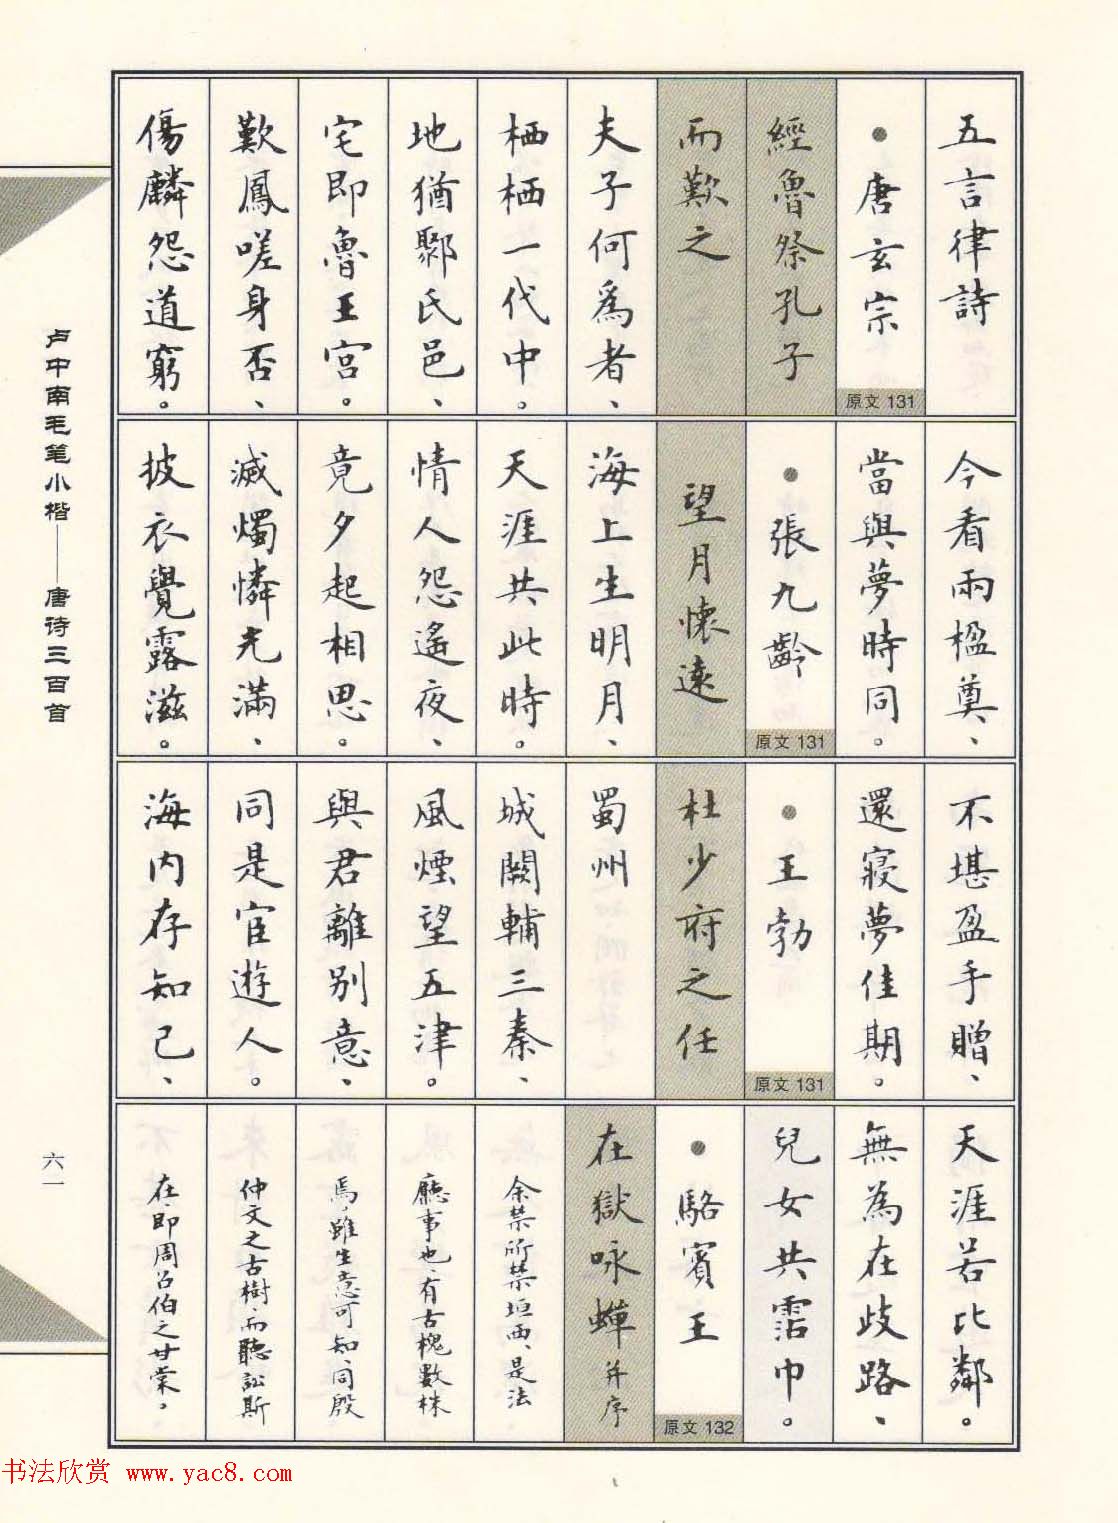 五言律詩
●唐玄宗
原文 131
經魯祭孔子
而歎之
夫子何爲者、
栖栖一代中。
地猶鄹氏邑、
宅即魯王宮。
歎鳳嗟身否、
傷麟怨道窮。
今看兩楹奠、
當與夢時同。
●張九齡
原文 131
望月懷遠
海上生明月、
天涯共此時。
情人怨遙夜、
竟夕起相思。
滅燭憐光滿、
披衣覺露滋。
不堪盈手贈、
還寢夢佳期。
●王勃
原文 131
杜少府之任
蜀州
城闕輔三秦、
風煙望五津。
與君離別意、
同是宦遊人。
海内存知己、
天涯若比鄰。
無為在歧路、
兒女共霑巾。
●駱賓王
原文 132
在獄咏蟬并序
余禁所禁垣西、是法
廳事也、有古槐數株
焉、雖生意可知、同殷
仲文之古樹、而聽訟斯
在、即周召伯之甘棠。
卢中南毛笔小楷——唐诗三百首
六一
书法欣赏 www.yac8.com